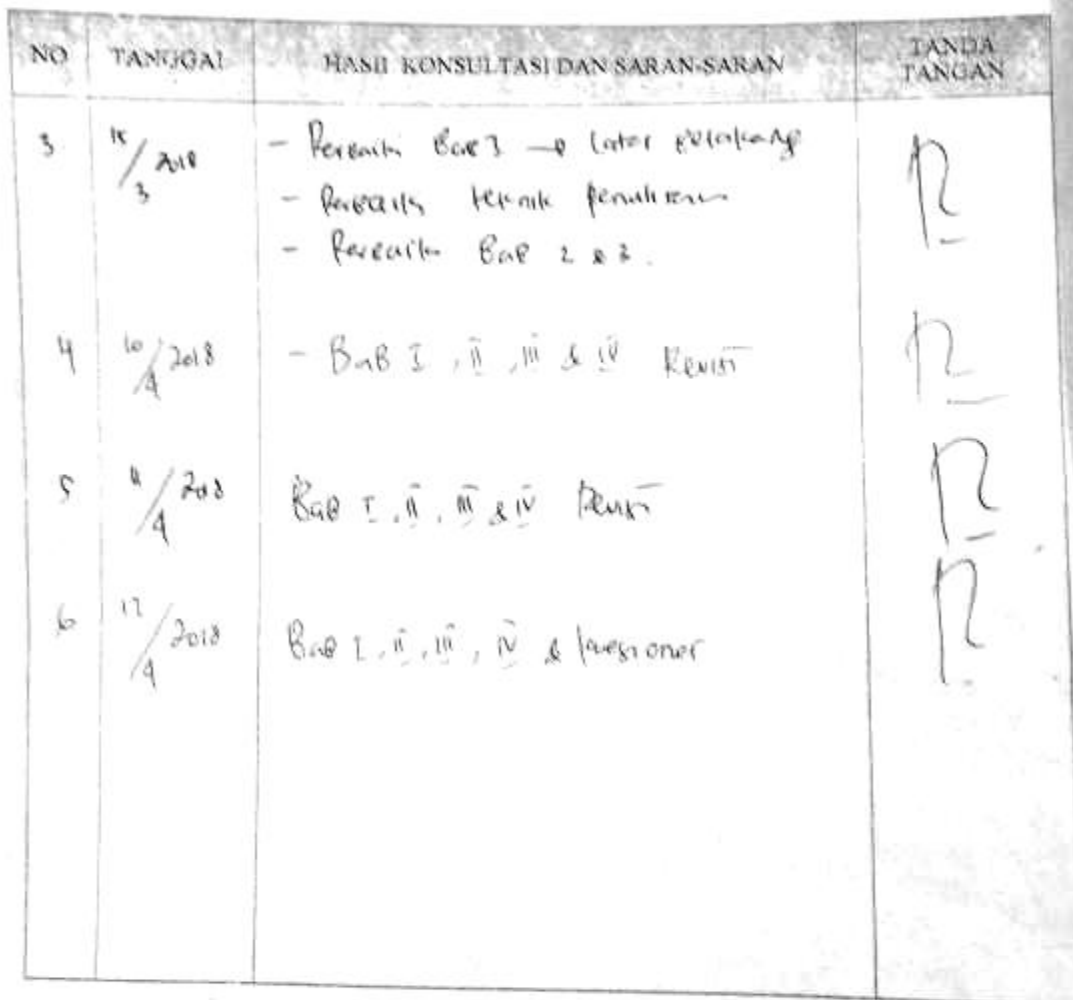 NO TANGGAL HASIL KONSULTASI DAN SARAN-SARAN TANDA TANGAN
3 /3 2018 - Perbaiki Bab → latar belakang
- Perbaiki teknik penulisan
- Perbaiki Bab 2 & 3.
4 10/4 2018 - BaB I, II, III & IV Revisi
5 11/4 2018 BaB I, II, III & IV Revisi
6 /4 2018 BaB I, II, III, IV & kuesioner